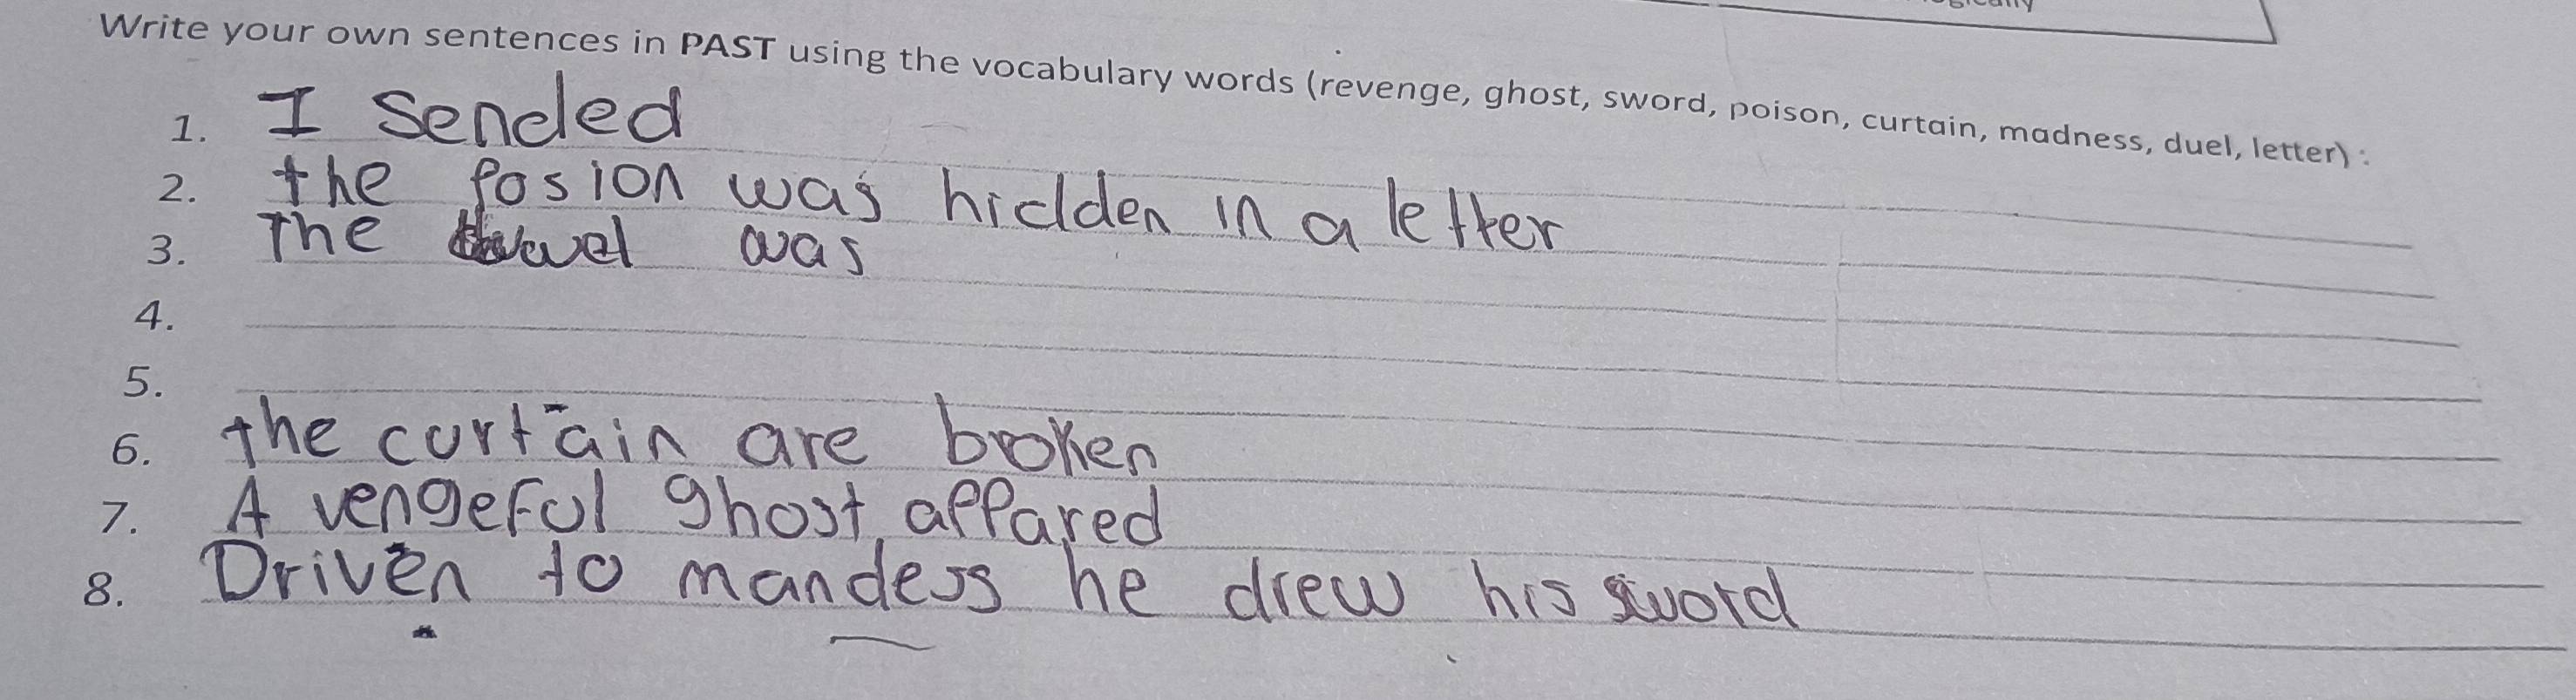 Write your own sentences in PAST using the vocabulary words (revenge, ghost, sword, poison, curtain, madness, duel, letter) :
1. I sended
2. the posion was hidden in a letter
3. The was
4.
5.
6. the curtain are broken
7. A vengeful ghost appared
8. Driven to mandess he drew his sword